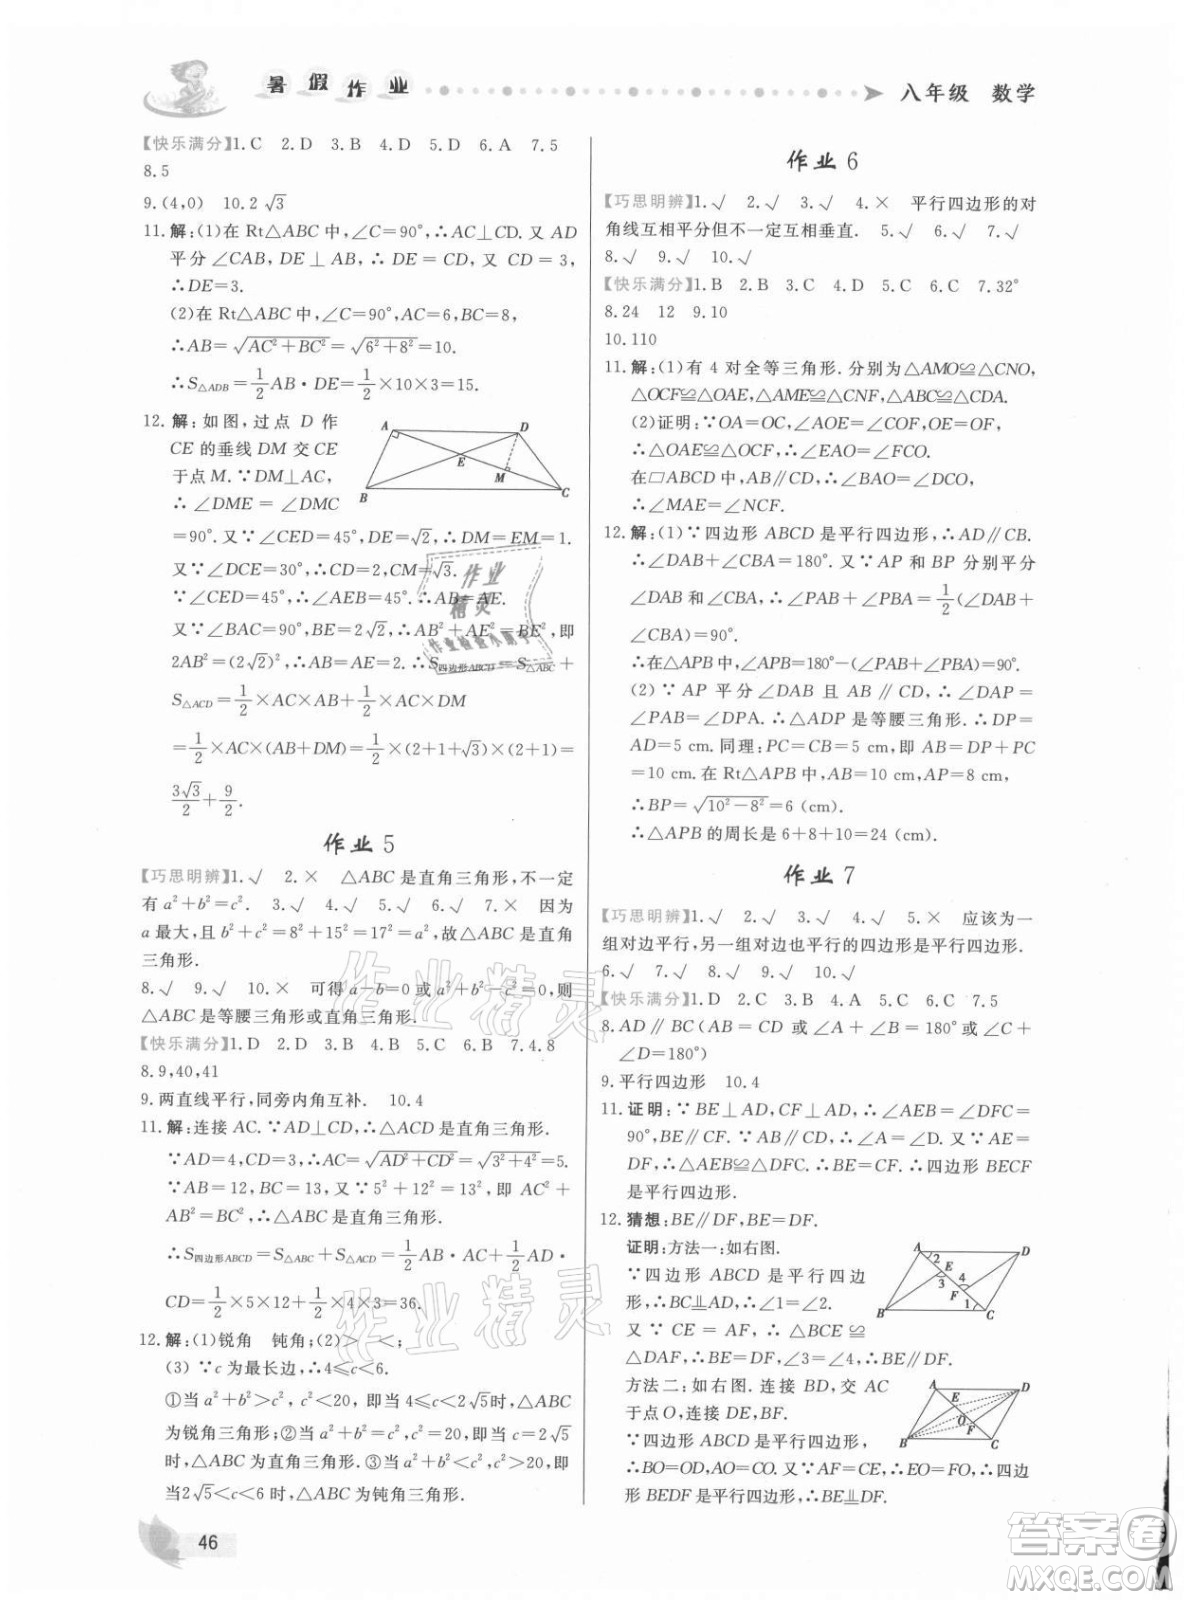 暑假作业
八年级 数学
【快乐满分】1.C 2.D 3.B 4.D 5.D 6.A 7.5
8.5
9.(4,0) 10.2√3
11.解:(1)在 Rt△ABC 中,∠C=90°,∴AC⊥CD.又 AD
平分∠CAB, DE⊥AB, ∴ DE=CD, 又 CD=3,
∴DE=3.
(2)在 Rt△ABC 中,∠C=90°,AC=6,BC=8,
∴AB=√(AC²+BC²)=√(6²+8²)=10.
∴S△ADB=1/2AB·DE=1/2×10×3=15.
12.解:如图,过点 D 作
CE 的垂线 DM 交 CE
于点 M.∵DM⊥AC,
∴ ∠DME = ∠DMC
=90°.又∵∠CED=45°,DE=√2,∴DM=EM=1.
又∵∠DCE=30°,∴DC=2,CM=√3.
∵∠CED=45°,∴∠AEB=45°.∴AB=AE.
又∵∠BAC=90°,BE=2√2,∴AB²+AE²=BE²,即
2AB²=(2√2)².∴AB=AE=2.∴S四边形ABCD=S△ABC+
S△ACD=1/2×AC×AB+1/2×AC×DM
=1/2×AC×(AB+DM)=1/2×(2+1+√3)×(2+1)=
3√3/2+9/2.
A D E M B C
作业5
【巧思明辨】1.√ 2.× △ABC 是直角三角形,不一定
有 a²+b²=c². 3.√ 4.√ 5.√ 6.√ 7.× 因为
a 最大,且 b²+c²=8²+15²=17²=a²,故△ABC 是直角
三角形.
8.√ 9.√ 10.× 可得 a-b=0 或 a²+b²-c²=0,所以
△ABC 是等腰三角形或直角三角形.
【快乐满分】1.D 2.D 3.B 4.B 5.C 6.B 7.4.8
8.9,40,41
9.两直线平行,同旁内角互补. 10.4
11.解:连接 AC.∵AD⊥CD,∴△ACD 是直角三角形.
∵AD=4,CD=3,∴AC=√(AD²+CD²)=√(3²+4²)=5.
∵AB=12,BC=13,又∵5²+12²=13²,即 AC²+
AB²=BC²,∴△ABC 是直角三角形.
∴S四边形ABCD=S△ABC+S△ACD=1/2AB·AC+1/2AD·
CD=1/2×5×12+1/2×4×3=36.
12.解:(1)锐角 钝角;(2)> <;
(3) ∵c 为最长边,∴4≤c<6.
①当 a²+b²>c²,即当 4≤c<2√5时,△ABC 为
锐角三角形;②当 a²+b²=c²,即当 c=2√5
时,△ABC 为直角三角形.③当 a²+b²<c²,即
当2√5<c<6 时,△ABC 为钝角三角形.
46
作业6
【巧思明辨】1.√ 2.√ 3.√ 4.× 平行四边形的对
角线互相平分但不一定互相垂直. 5.√ 6.√ 7.√
8.√ 9.√ 10.√
【快乐满分】1.B 2.B 3.C 4.C 5.C 6.C 7.32°
8.24 12 9.10
10.110
11.解:(1)有 4 对全等三角形.分别为△AMO≌△CNO,
△OCF≌△OAE,△AME≌△CNF,△ABC≌△CDA.
(2)证明:∵OA=OC,∠AOE=∠COF,OE=OF,
∴△OAE≌△OCF.∴∠EAO=∠FCO.
在□ABCD中,AB∥CD,∴∠BAO=∠DCO.
∴∠MAE=∠NCF.
12.解:(1)∵四边形 ABCD 是平行四边形,∴AD∥CB.
∴∠DAB+∠CBA=180°.又∵AP 和 BP 分别平分
∠DAB 和∠CBA,∴∠PAB+∠PBA=1/2(∠DAB+
∠CBA)=90°.
∴在△APB中,∠APB=180°-(∠PAB+∠PBA)=90°.
(2)∵AP 平分∠DAB 且 AB∥CD,∴∠DAP=
∠PAB=∠DPA.∴△ADP 是等腰三角形.∴DP=
AD=5 cm.同理:PC=CB=5 cm,即 AB=DP+PC
=10 cm.在 Rt△APB 中,AB=10 cm,AP=8 cm,
∴BP=√(10²-8²)=6(cm).
∴△APB 的周长是 6+8+10=24(cm).
作业7
【巧思明辨】1.√ 2.√ 3.√ 4.√ 5.× 应该为一
组对边平行,另一组对边也平行的四边形是平行四边形.
6.√ 7.√ 8.√ 9.√ 10.√
【快乐满分】1.D 2.C 3.B 4.A 5.C 6.C 7.5
8.AD∥BC(AB=CD 或∠A+∠B=180°或∠C+
∠D=180°)
9.平行四边形 10.4
11.证明:∵BE⊥AD,CF⊥AD,∴∠AEB=∠DFC=
90°,BE∥CF.∵AB∥CD,∴∠A=∠D.又∵AE=
DF,∴△AEB≌△DFC.∴BE=CF.∴四边形 BECF
是平行四边形.
12.猜想:BE∥DF,BE=DF.
证明:方法一:如右图.
∵四边形 ABCD 是平行四边
形,∴BC⊥AD,∴∠1=∠2.
又∵CE=AF,∴△BCE≌
△DAF.∴BE=DF,∠3=∠4,∴BE∥DF.
方法二:如右图.连接 BD,交 AC
于点 O,连接 DE,BF.
∵四边形 ABCD 是平行四边形,
∴BO=OD,AO=CO.又∵AF=CE,∴EO=FO,∴四边
形 BEDF 是平行四边形.∴BE⊥DF.
A D 2 E 3 4 F 1 B C
A D E O F B C
作业精灵
作业检查小助手
作业精灵
作业精灵
答案圈
MXQE.COM